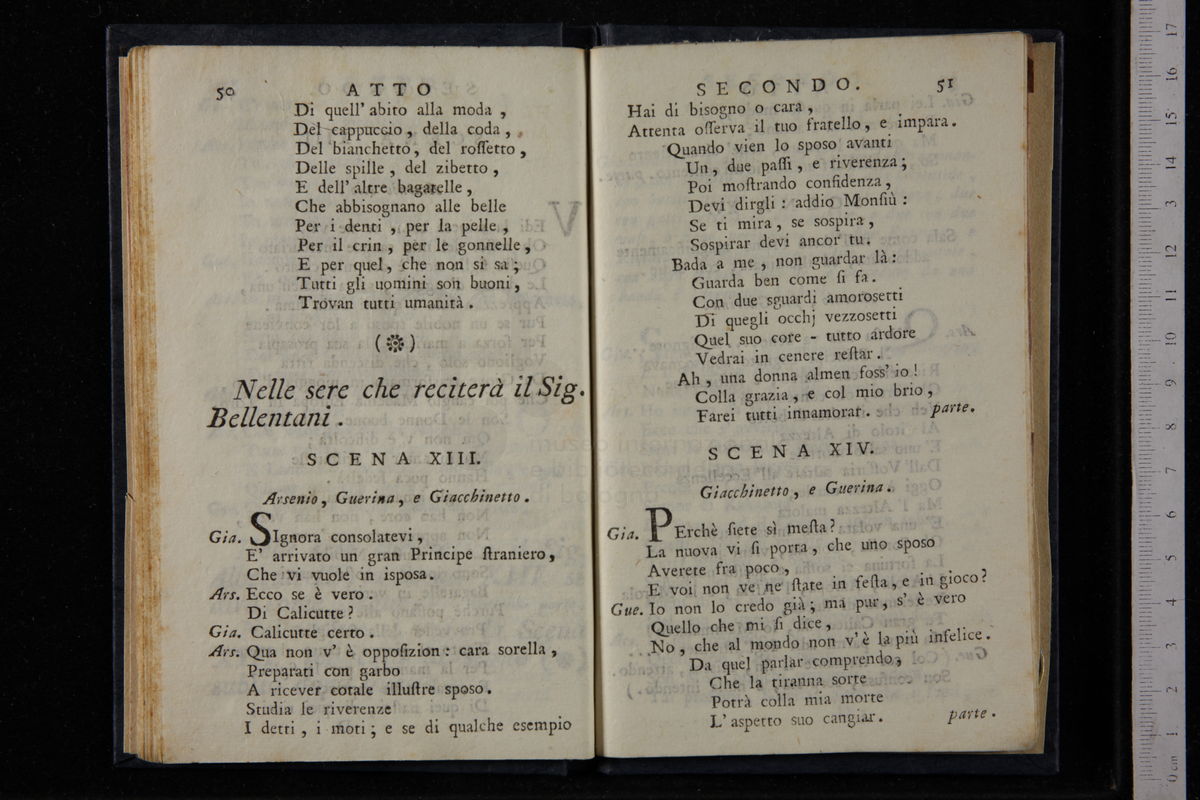 50 ATTO
Di quell' abito alla moda ,
Del cappuccio , della coda ,
Del bianchetto , del roſſetto ,
Delle spille , del zibetto ,
E dell' altre bagatelle ,
Che abbisognano alle belle
Per i denti , per la pelle ,
Per il crin , per le gonnelle ,
E per quel , che non si sa ;
Tutti gli uomini son buoni ,
Trovan tutti umanità .
Nelle sere che reciterà il Sig.
Bellentani .
SCENA XIII.
Arsenio , Guerina , e Giacchinetto .
Gia. SIgnora consolatevi ,
E' arrivato un gran Principe ſtraniero ,
Che vi vuole in isposa .
Ars. Ecco se è vero .
Di Calicutte ?
Gia. Calicutte certo .
Ars. Qua non v' è oppoſizion : cara sorella ,
Preparati con garbo
A ricever cotale illuſtre sposo .
Studia le riverenze
I detti , i moti ; e se di qualche esempio
SECONDO. 51
Hai di bisogno o cara ,
Attenta oſſerva il tuo fratello , e impara .
Quando vien lo sposo avanti
Un , due paſſi , e riverenza ;
Poi moſtrando confidenza ,
Devi dirgli : addio Monſiù :
Se ti mira , se sospira ,
Sospirar devi ancor tu .
Bada a me , non guardar là :
Guarda ben come ſi fa .
Con due sguardi amorosetti
Di quegli occhj vezzosetti
Quel suo core - tutto ardore
Vedrai in cenere reſtar .
Ah , una donna almen foss' io !
Colla grazia , e col mio brio ,
Farei tutti innamorar . parte.
SCENA XIV.
Giacchinetto , e Guerina .
Gia. PErchè ſiete sì meſta ?
La nuova vi ſi porta , che uno sposo
Averete fra poco ,
E voi non ve ne ſtate in feſta , e in gioco ?
Gue. Io non lo credo già ; ma pur , s' è vero
Quello che mi ſi dice ,
No , che al mondo non v' è la più infelice .
Da quel parlar comprendo ,
Che la tiranna sorte
Potrà colla mia morte
L' aspetto suo cangiar . parte .